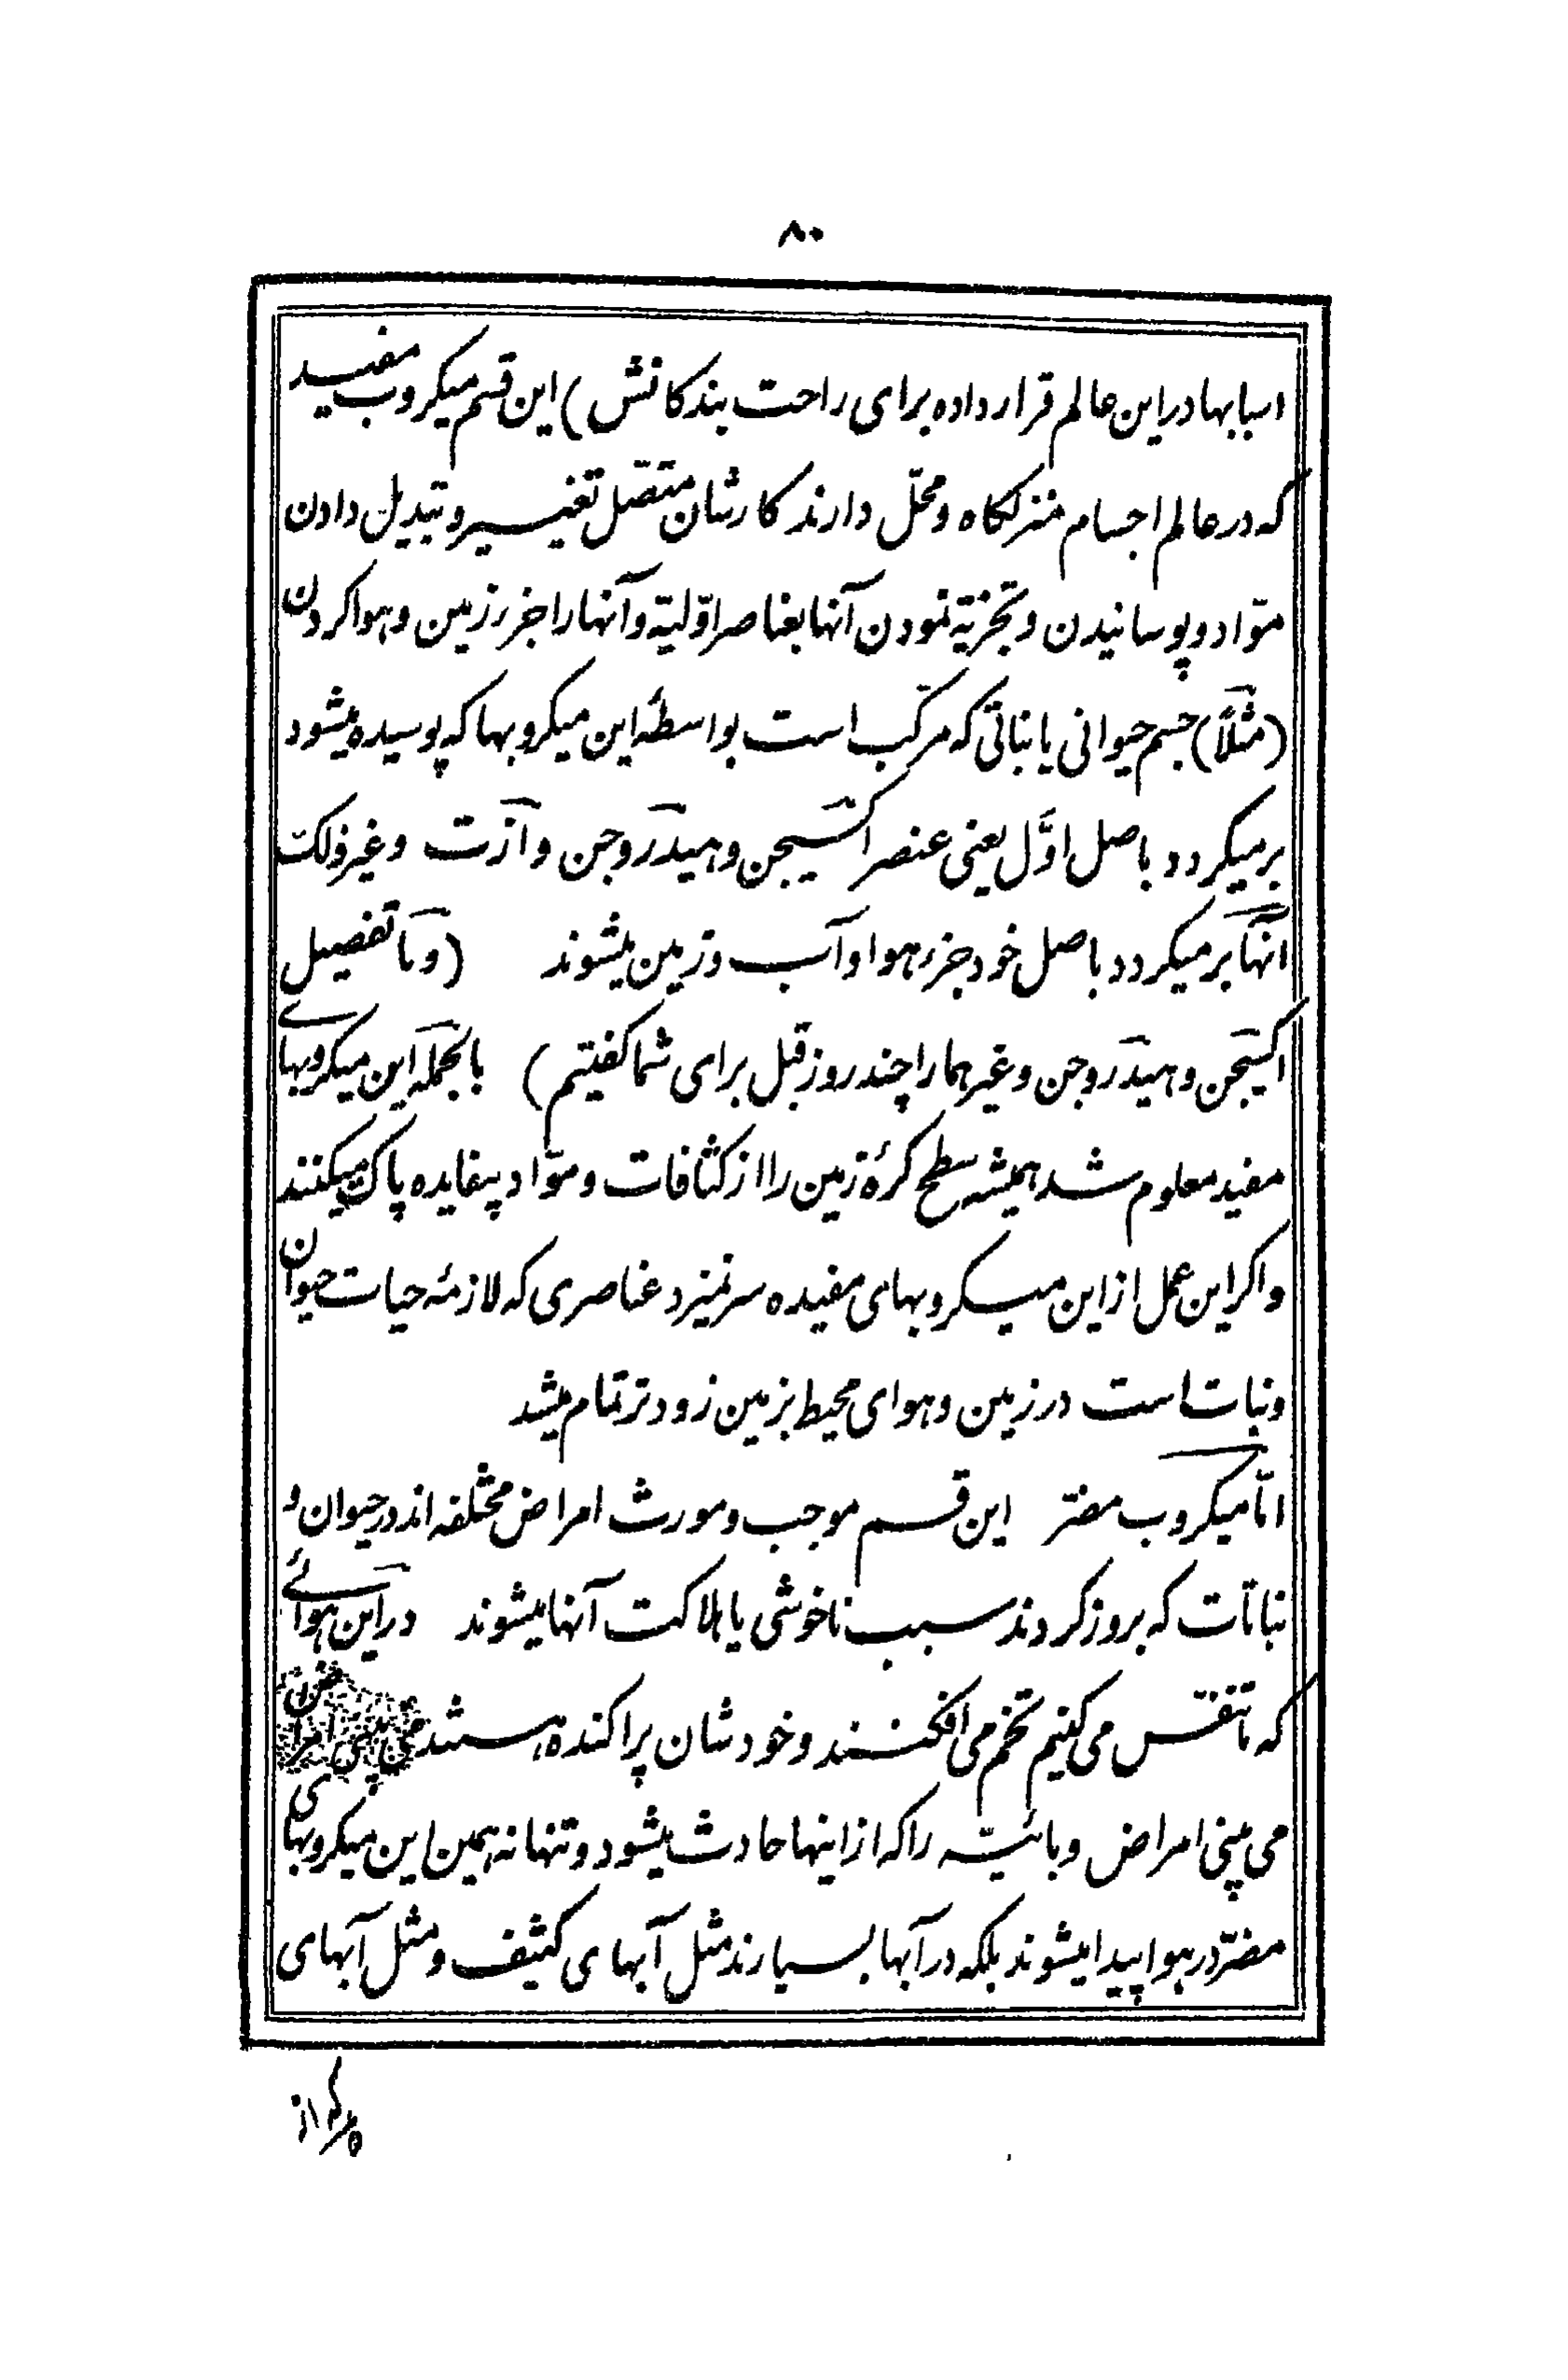 ۸۰
اسبابها در این عالم قرار داده برای راحت بندکانش) این قسم میکروب مفید
که در عالم اجسام منزلکاه و محلّ دارند کارشان متّصل تغییر و تبدیل دادن
موّاد و پوسانیدن و تجزیة نمودن آنها بعناصر اوّلیّة و آنها را جزء زمین و هوا کردن
(مثلاً) جسم حیوانی یا نباتی که مرکّب است بواسطهٔ این میکروبها که پوسیده میشود
بر میکردد باصل اوّل یعنی عنصر اکسیجن و هیدروجن و آزت و غیر ذلک
انها بر میکردد باصل خود جزء هوا و آب و زمین میشوند (و ما تفصیل
اکسیجن و هیدروجن و غیرهما را چند روز قبل برای شما کفتیم) بالجمله این میکروبهای
مفید معلوم شد همیشه سطح کرهٔ زمین را از کثافات و موّاد بیفایده پاک میکنند
و اکر این عمل از این میکروبهای مفیده سر نمیزد عناصری که لازمهٔ حیات حیوان
و نبات است در زمین و هوای محیط بزمین زودتر تمام میشد
امّا میکروب مضرّ این قسم موجب و مورث امراض مختلفه اند در حیوان و
نباتات که بروز کردند سبب ناخوشی یا هلاکت آنها میشوند در این هوائی
که ما تنفّس می کنیم تخم می افکنند و خودشان پراکنده هستند
می بینی امراض وبائیّه را که از اینها حادث میشود و تنها نه همین این میکروبهای
مضرّ در هوا پیدا میشوند بلکه در آبها بسیارند مثل آبهای کثیف و مثل آبهای